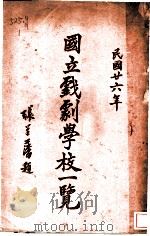 民國廿六年
國立戲劇學校一覽
張道藩題